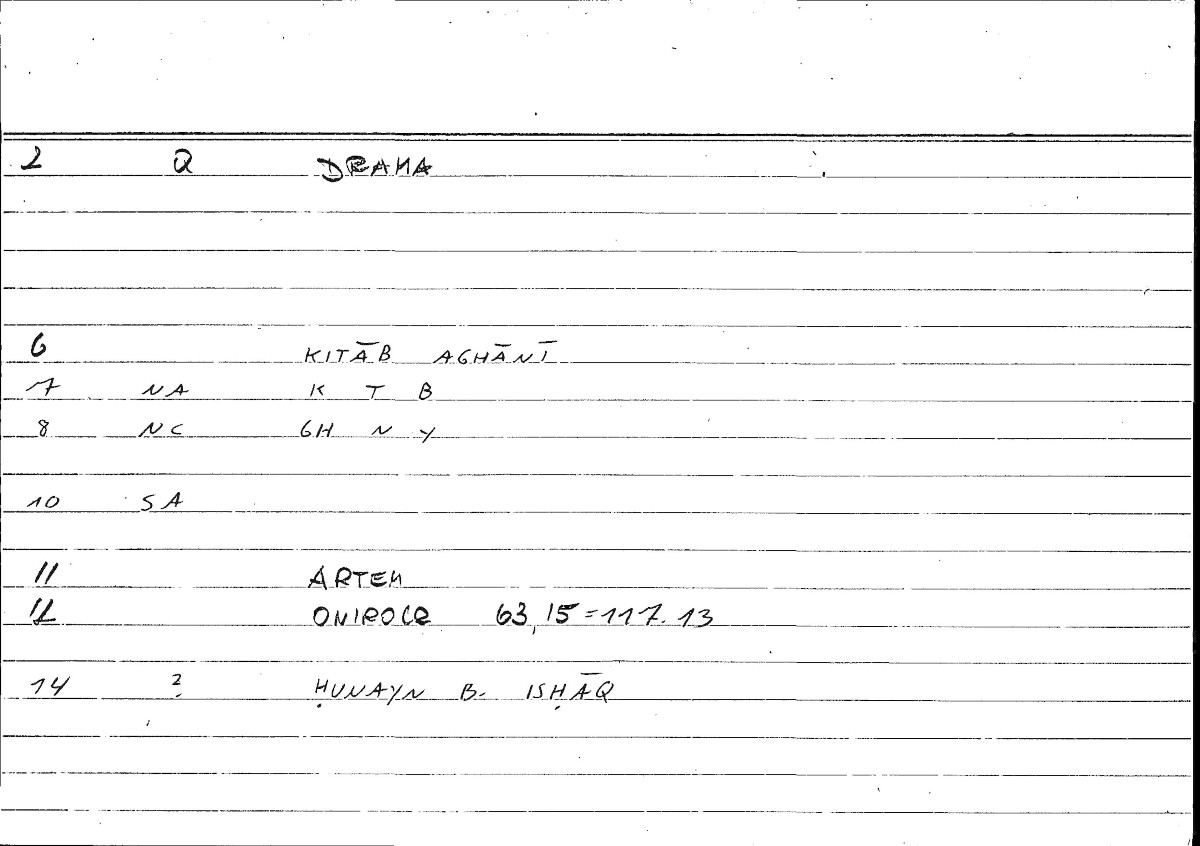 2 Q DRAMA
6 KITĀB AGHĀNĪ
7 NA K T B
8 NC GH N Y
10 SA
11 ARTEM
12 ONIROCR 63,15=117.13
14 ? ḤUNAYN B. ISḤĀQ